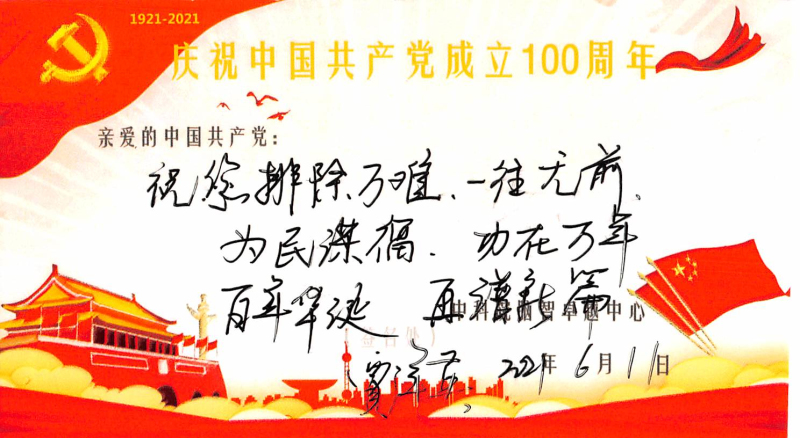 1921-2021
庆祝中国共产党成立100周年
亲爱的中国共产党：
祝您排除万难、一往无前、
为民谋福、功在万年
百年华诞 再谱新篇
中科院脑智卓越中心
2021年6月11日